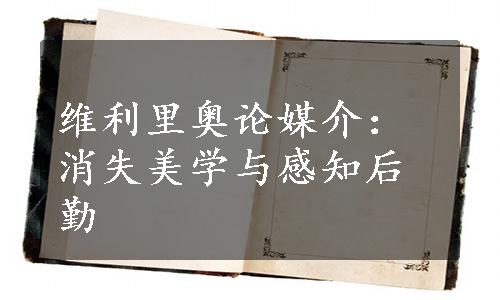 维利里奥论媒介：
消失美学与感知后
勤